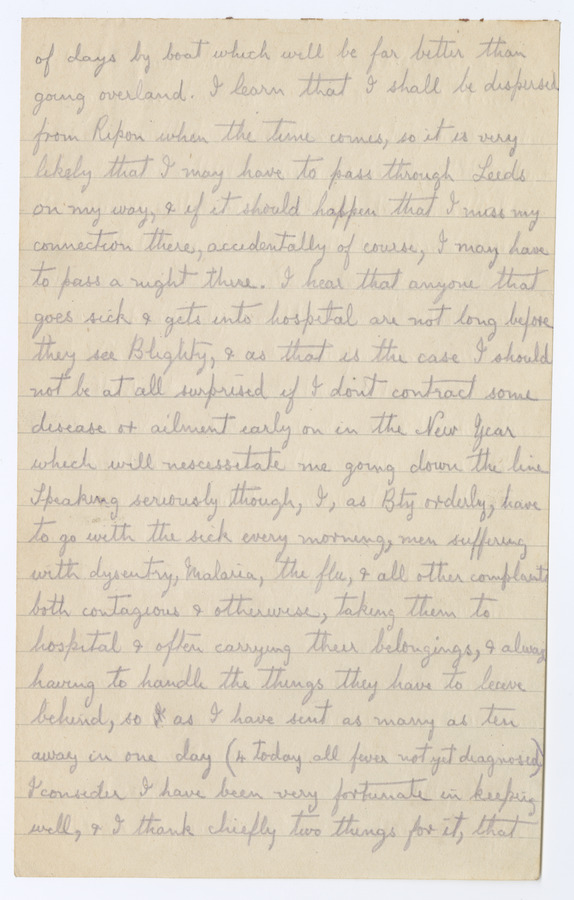 of days by boat which will be far better than
going overland. I learn that I shall be dispersed
from Ripon when the time comes, so it is very
likely that I may have to pass through Leeds
on my way, & if it should happen that I miss my
connection there, accidentally of course, I may have
to pass a night there. I hear that anyone that
goes sick & gets into hospital are not long before
they see Blighty, & as that is the case I should
not be at all surprised if I don't contract some
disease or ailment early on in the New Year
which will nescessitate me going down the line
Speaking seriously though, I, as Bty orderly, have
to go with the sick every morning, men suffering
with dysentry, Malaria, the flu, & all other complaints
both contagious & otherwise, taking them to
hospital & often carrying their belongings, & always
having to handle the things they have to leave
behind, so as I have sent as many as ten
away in one day (4 today all fever not yet diagnosed)
I consider I have been very fortunate in keeping
well, & I thank chiefly two things for it, that